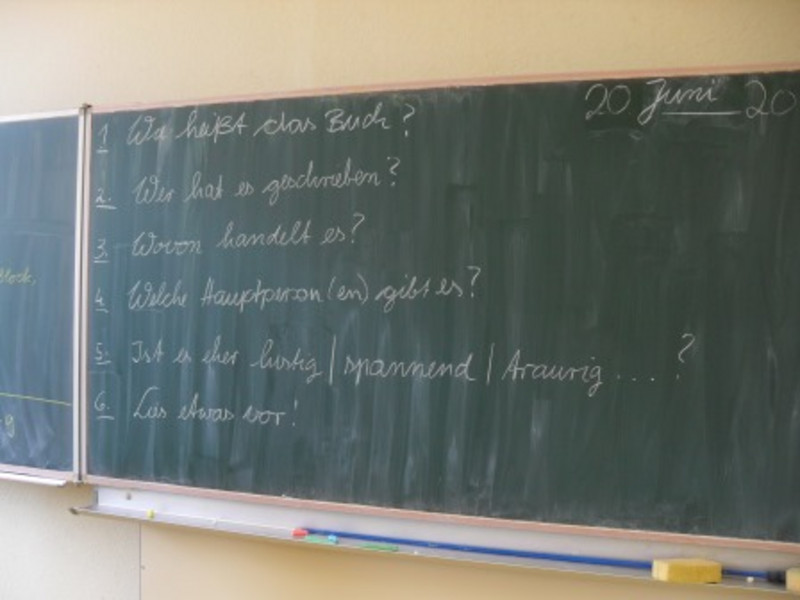 20 Juni 20
1 Wie heißt das Buch?
2. Wer hat es geschrieben?
3. Wovon handelt es?
4. Welche Hauptperson(en) gibt es?
5. Ist es eher lustig | spannend | traurig .... ?
6. Lies etwas vor!
Block,